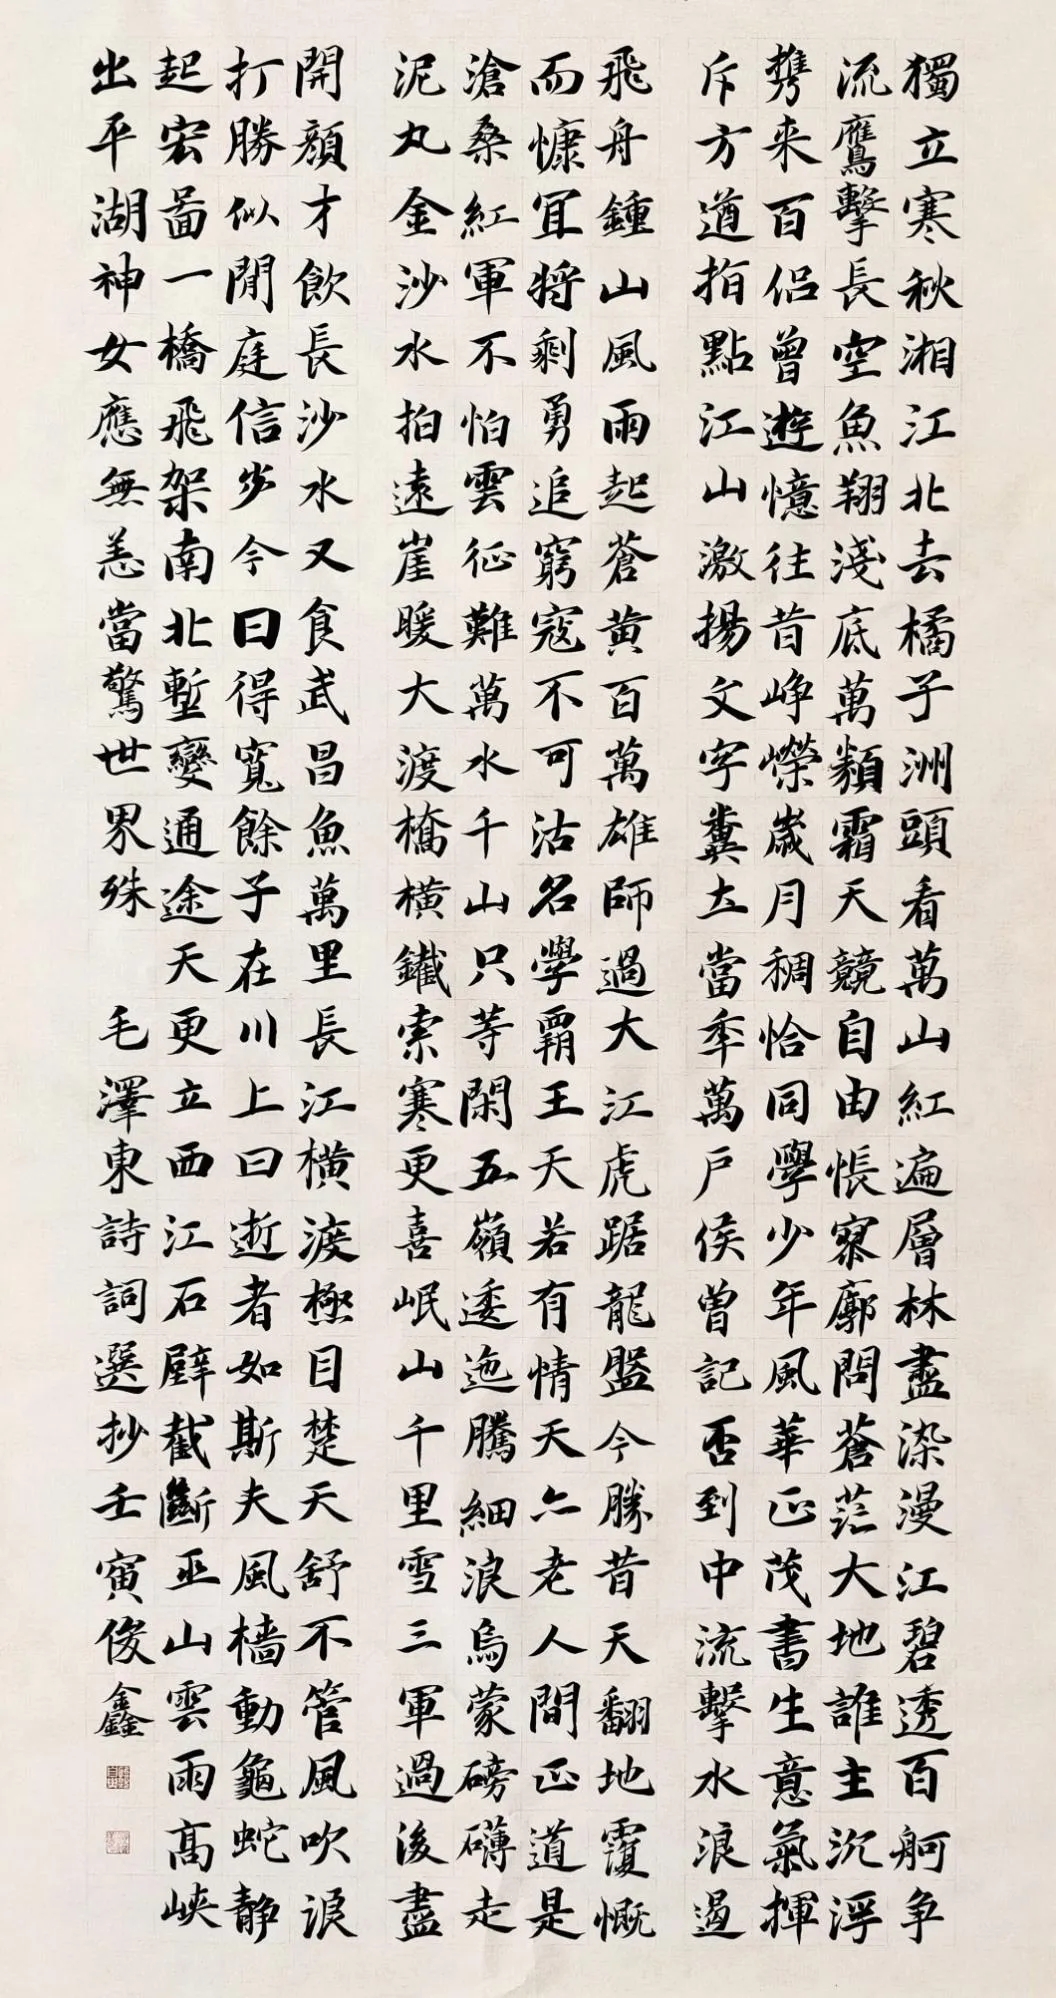 獨立寒秋湘江北去橘子洲頭看萬山紅遍層林盡染漫江碧透百舸爭
流鷹擊長空魚翔淺底萬類霜天競自由悵寥廓問蒼茫大地誰主沉浮
携来百侣曾遊憶往昔崢嶸歲月稠恰同學少年風華正茂書生意氣揮
斥方遒指點江山激揚文字糞土當年萬戶侯曾記否到中流擊水浪遏
飛舟鍾山風雨起蒼黃百萬雄師過大江虎踞龍盤今勝昔天翻地覆慨
而慷宜將剩勇追窮寇不可沽名學霸王天若有情天亦老人間正道是
滄桑紅軍不怕雲征難萬水千山只等閑五嶺逶迤騰細浪烏蒙磅礴走
泥丸金沙水拍遠崖暖大渡橋橫鐵索寒更喜岷山千里雪三軍過後盡
開顏才飲長沙水又食武昌魚萬里長江橫渡極目楚天舒不管風吹浪
打勝似閒庭信步今日得寬餘子在川上曰逝者如斯夫風檣動龜蛇靜
起宏圖一橋飛架南北塹變通途天更立西江石壁截斷巫山雲雨高峽
出平湖神女應無恙當驚世界殊 毛澤東詩詞選抄壬寅俊鑫